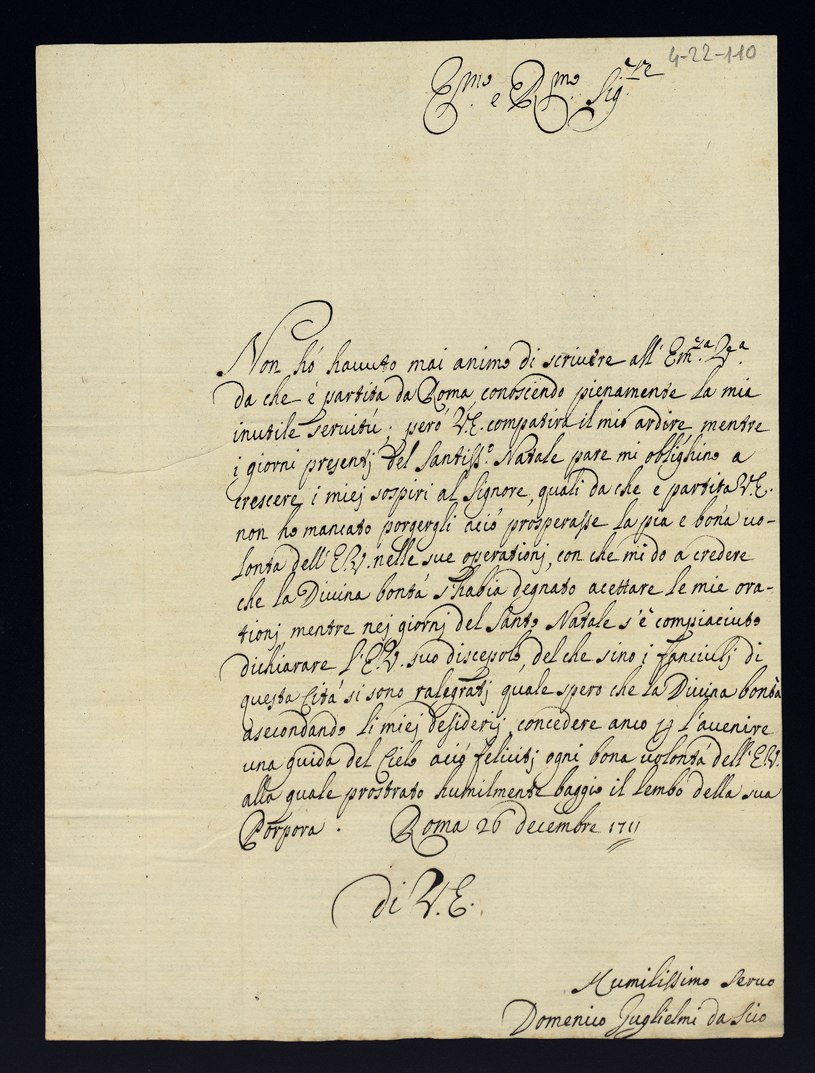 4-22-110
Em.mo e R.mo Sig.re
Non hò hauuto mai animo di scriuere all' Em.za V.a
da che è partita da Roma conoscendo pienamente la mia
inutile seruitù; però V.E. compatirà il mio ardire mentre
i giorni presentj del Santiss.o Natale pare mi oblighino a
crescere i miej sospiri al Signore, quali da che è partita V.E.
non ho mancato porgergli aciò prosperasse la pia e bona uo-
lontà dell' E.V. nelle sue operationj, con che mi do a credere
che la Diuina bontà s'habia degnato acettare le mie ora-
tionj mentre nej giornj del Santo Natale s'è compiaciuto
dichiarare l'E.V. suo discepolo, del che sino i fanciulj di
questa Cità si sono ralegratj quale spero che la Diuina bontà
asecondando li miej desiderij, concedere anco p l'auenire
una guida del Cielo aciò felicitj ogni bona uolontà dell' E.V.
alla quale prostrato humilmente baggio il lembo della sua
Porpora. Roma 26 decembre 1711
di V.E.
Humilissimo seruo
Domenico Guglielmi da Scio